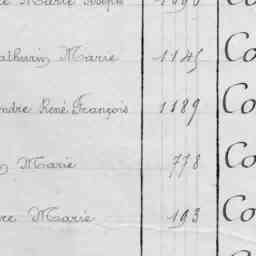 Marie Joseph
Mathurin Marie 1145 Co
René François 1189 Co
Marie 778 Co
Marie 193 Co